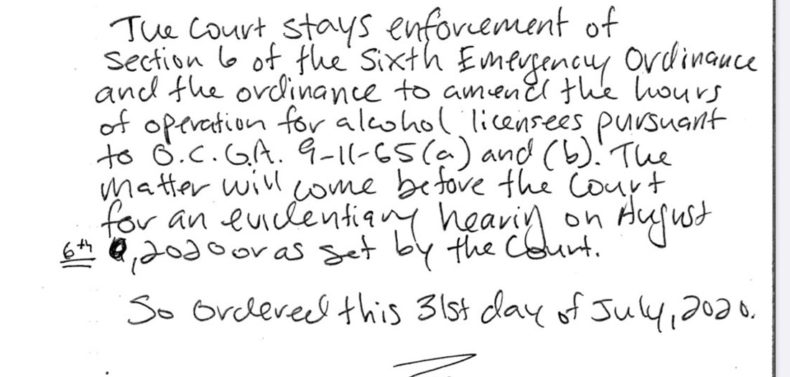 The Court stays enforcement of
Section 6 of the Sixth Emergency Ordinance
and the ordinance to amend the hours
of operation for alcohol licensees pursuant
to O.C.G.A. 9-11-65(a) and (b). The
matter will come before the Court
for an evidentiary hearing on August
6th, 2020 or as set by the Court.
So ordered this 31st day of July, 2020.